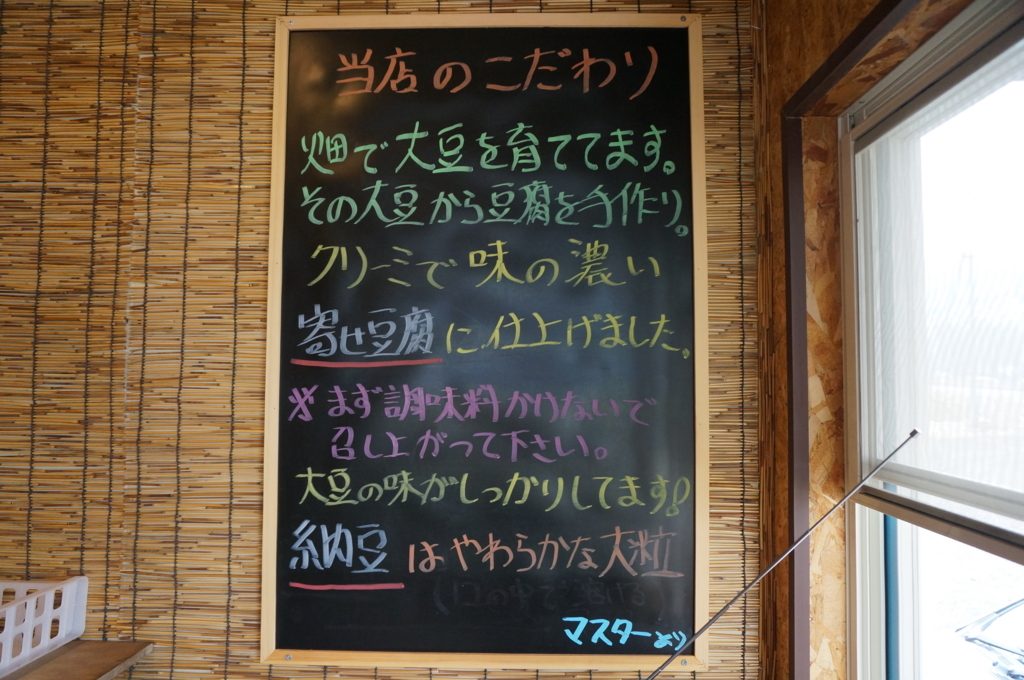 当店のこだわり
畑で大豆を育ててます。
その大豆から豆腐を手作り。
クリーミで味の濃い
寄せ豆腐に仕上げました。
※まず調味料かけないで
召し上がって下さい。
大豆の味がしっかりしてます!
納豆はやわらかな大粒
(口の中で溶ける)
マスターより